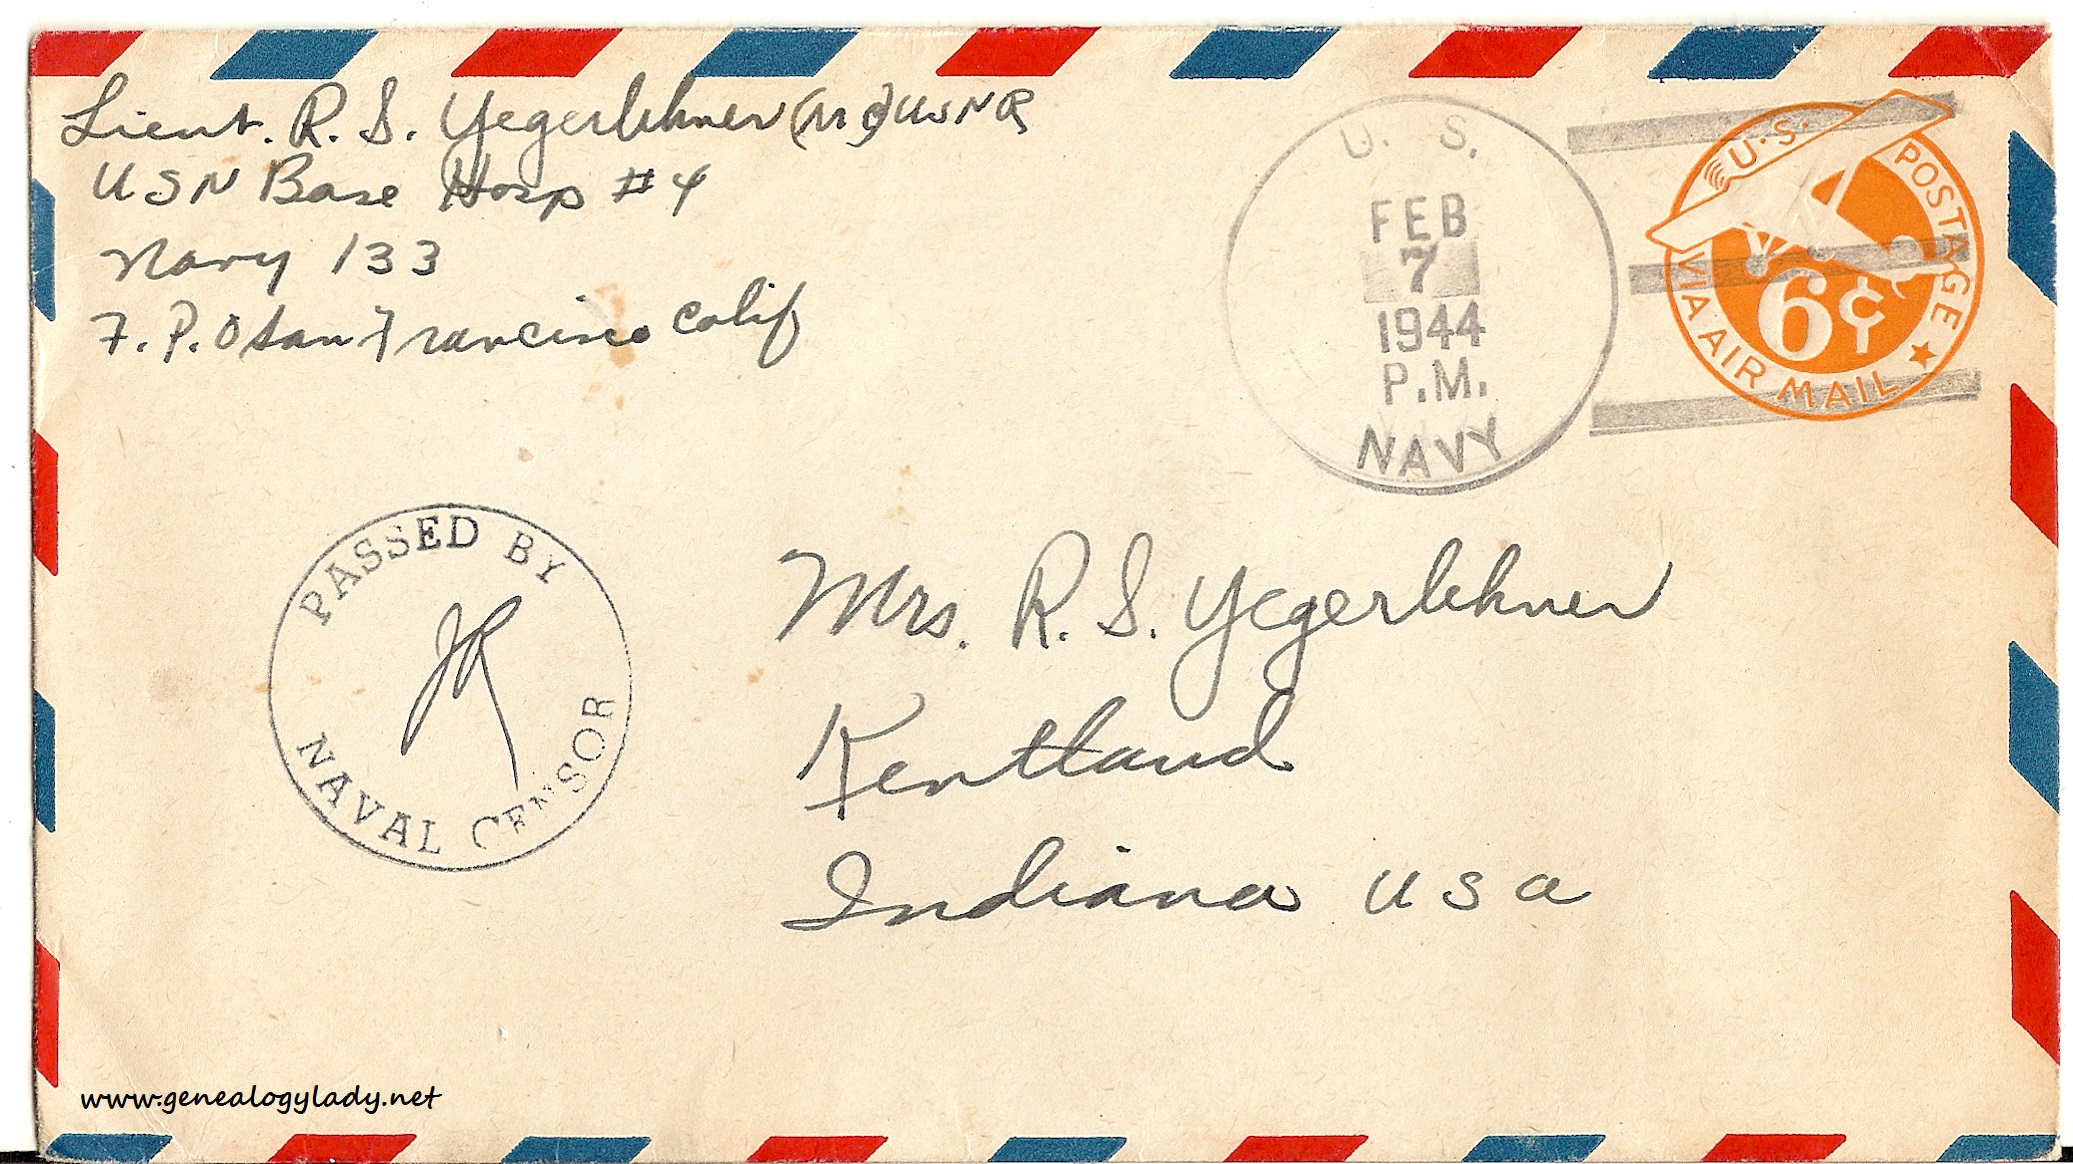 Lieut. R. S. Yegerlehner (MC) USNR
USN Base Hosp #4
Navy 133
F.P.O San Francisco Calif
U. S.
FEB
7
1944
P.M.
NAVY
U.S. POSTAGE
6¢
VIA AIR MAIL
PASSED BY
JR
NAVAL CENSOR
Mrs. R. S. Yegerlehner
Kentland
Indiana USA
www.genealogylady.net